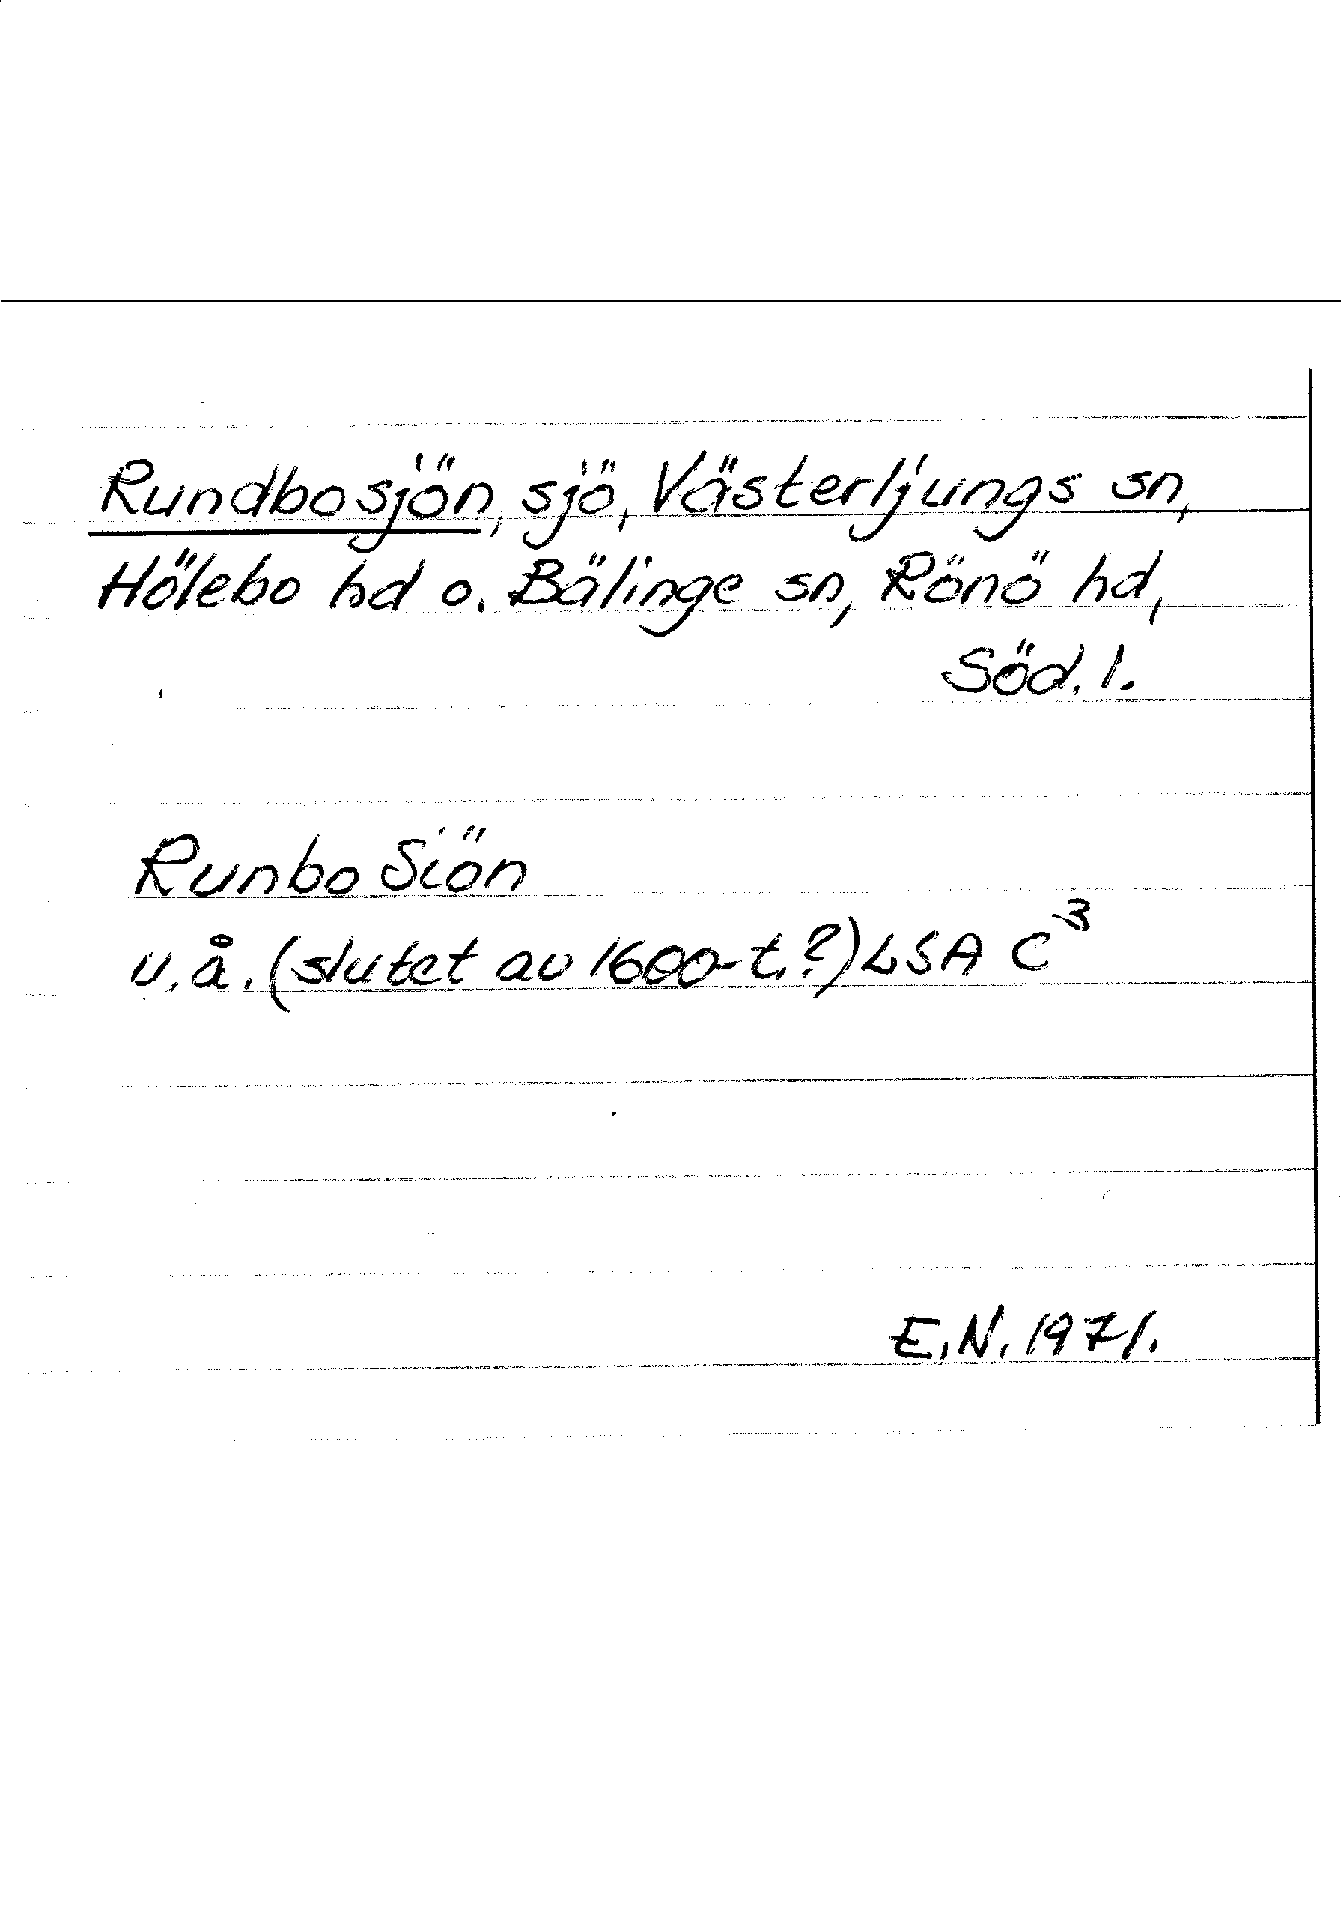 Rundbosjön, sjö, Västerljungs sn,
Hölebo hd o. Bälinge sn, Rönö hd,
Söd. l.
Runbo Siön
u.å. (slutet av 1600-t.?) LSA C³
E.N. 1971.